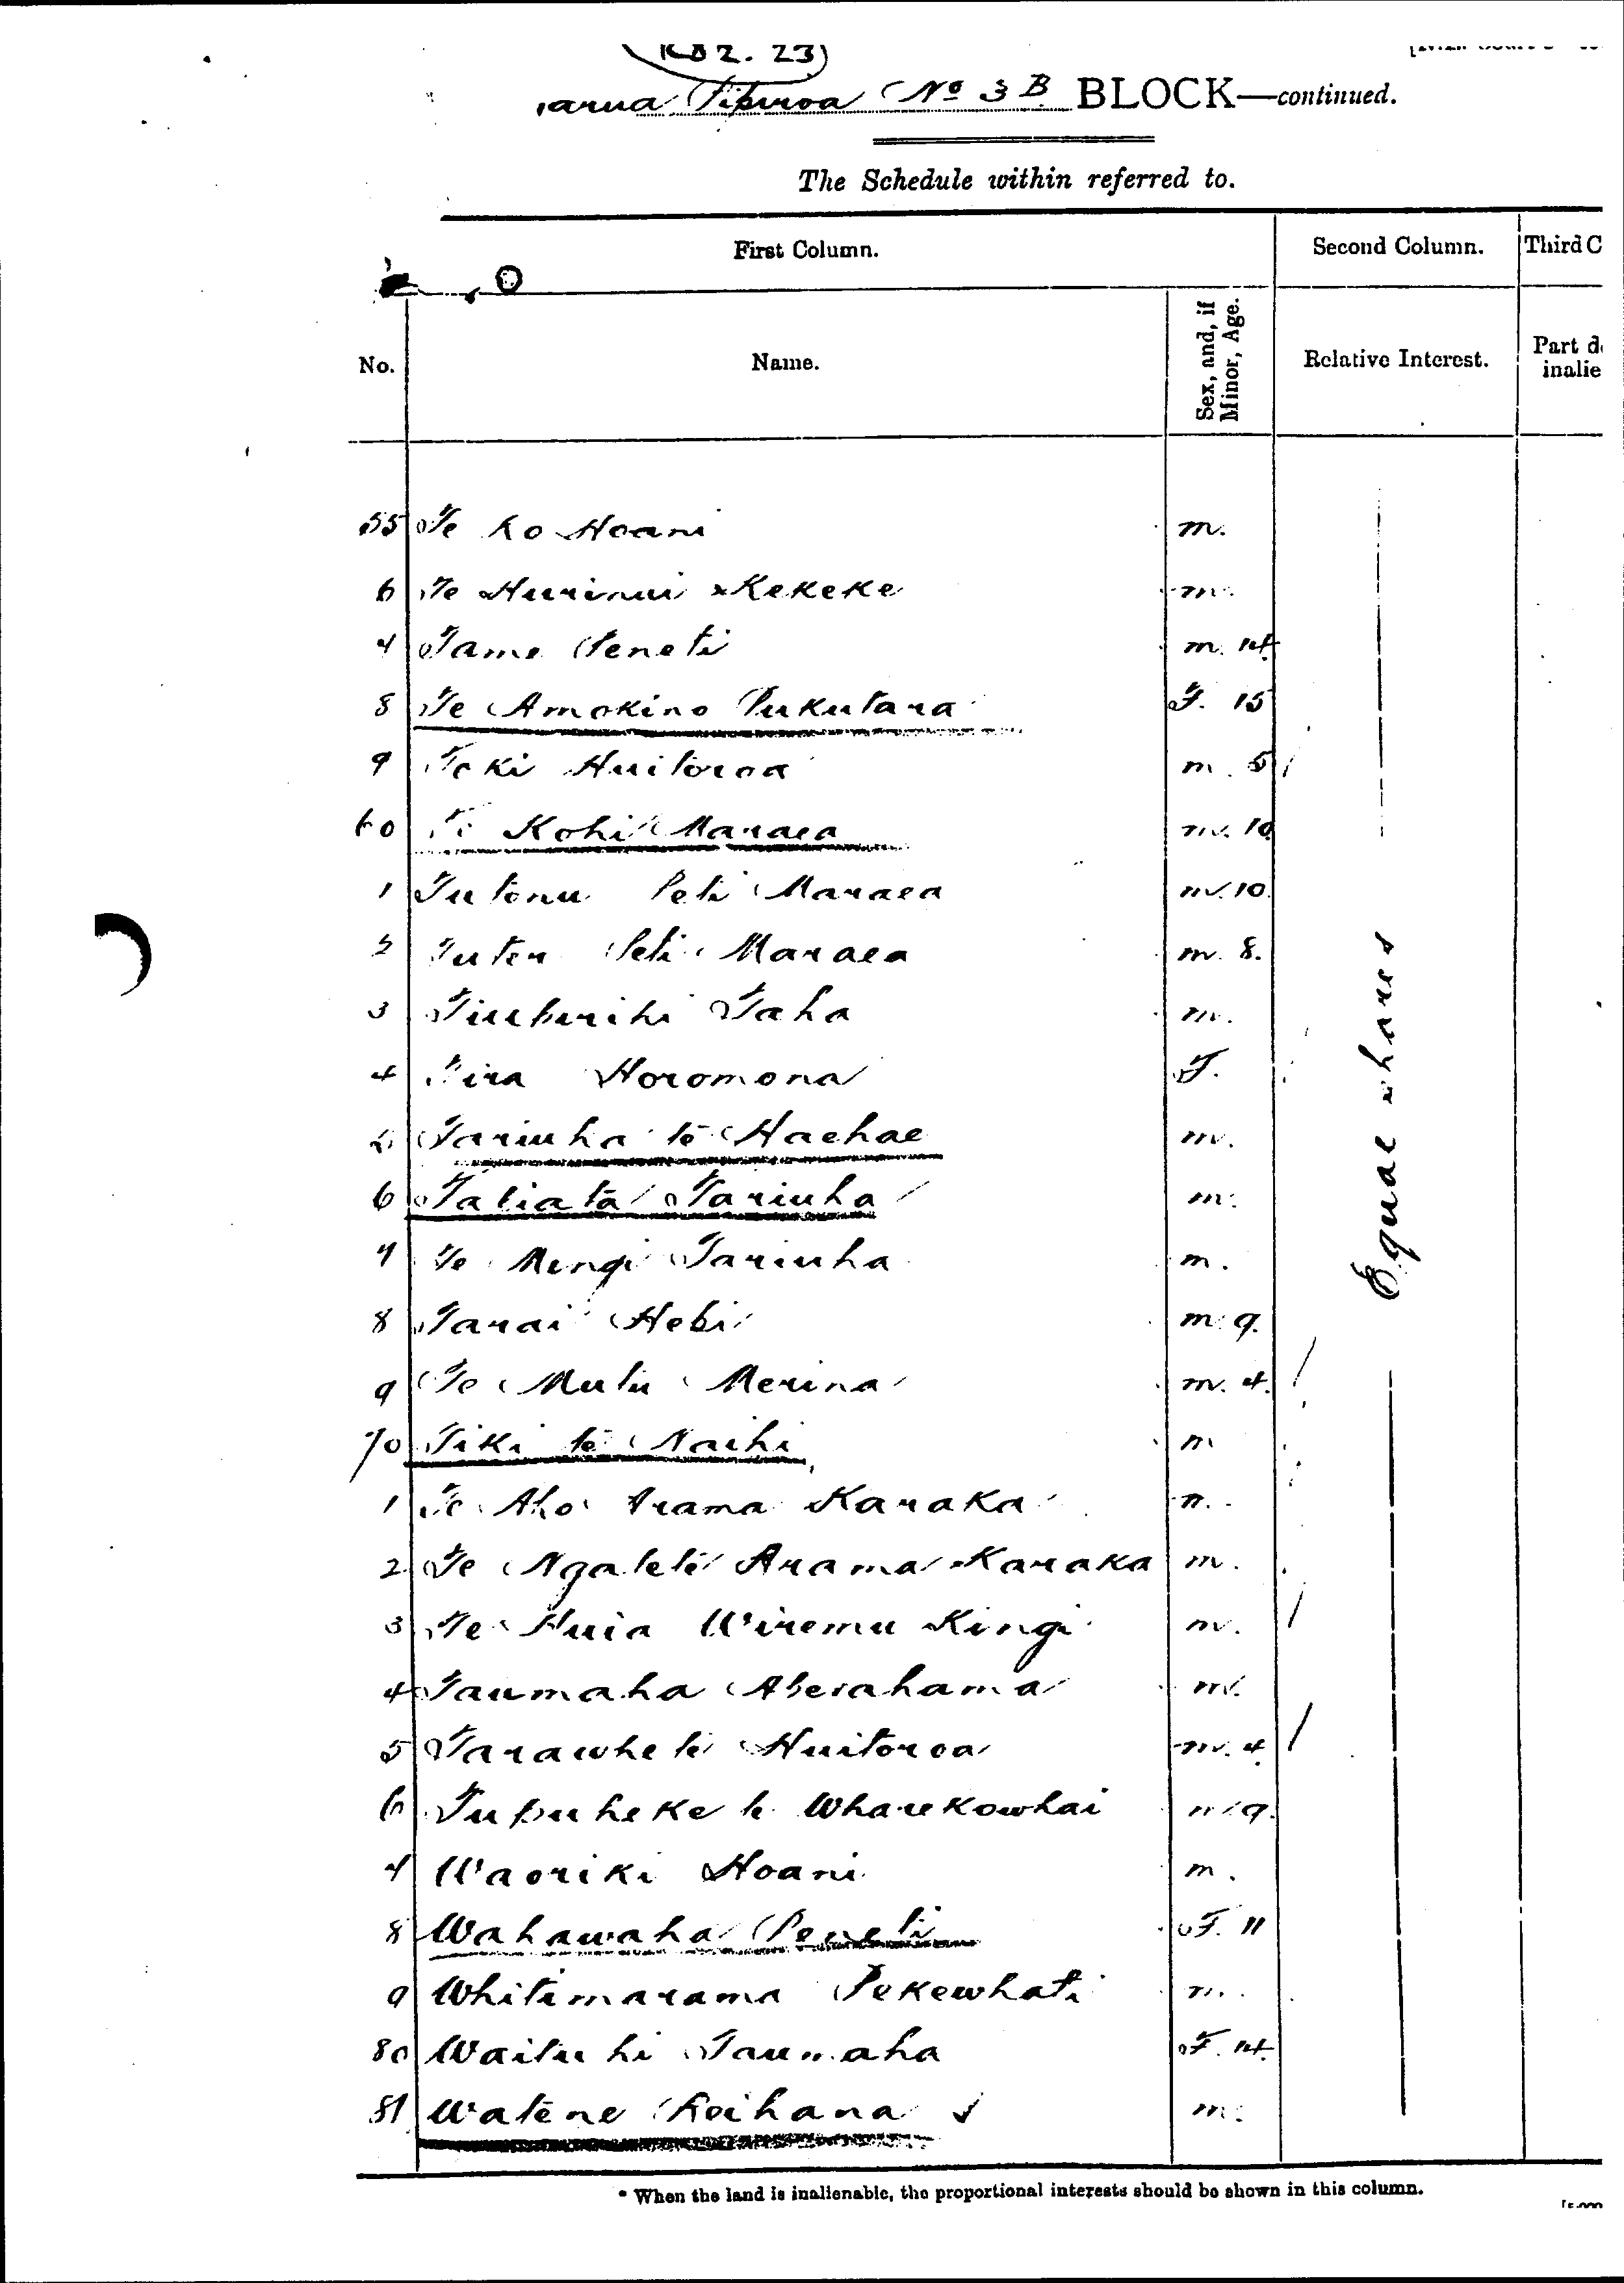 2. 23)
arua Tipuroa No 3 B BLOCK—continued.
The Schedule within referred to.
First Column. Second Column. Third C
No. Name. Sex, and, if Minor, Age. Relative Interest. Part d inalie
55 Te Ko Hoani m.
6 Te Hurinui Kekeke m.
7 Tame Peneti m. 14
8 Te Amokino Pukutara F. 15
9 Toki Huitoroa m. 5
60 Te Kohi Maraea m. 10
1 Tutonu Peti Maraea m. 10.
2 Peti Maraea m. 8.
3 Taha m.
4 Tira Horomona F.
5 Tariuha te Haehae m.
6 Tatiata Tariuha m.
7 Te Mengi Tariuha m.
8 Tarai Hebi m. 9.
9 Te Mutu Merina m. 4.
70 Tiki te Naihi m
1 Te Aho Arama Karaka m.
2 Te Ngatete Arama Karaka m.
3 Te Huia Wiremu Kingi m.
4 Taumaha Aperahama m.
5 Tarawhete Huitoroa m. 4.
6 Tupuheke te Wharekowhai m. 9.
7 Waoriki Hoani m.
8 Wahawaha Peneti F. 11
9 Whitimarama Pekewhati m.
80 Waituhi Taumaha F. 14.
81 Watene Reihana m.
Equal shares
* When the land is inalienable, the proportional interests should be shown in this column.